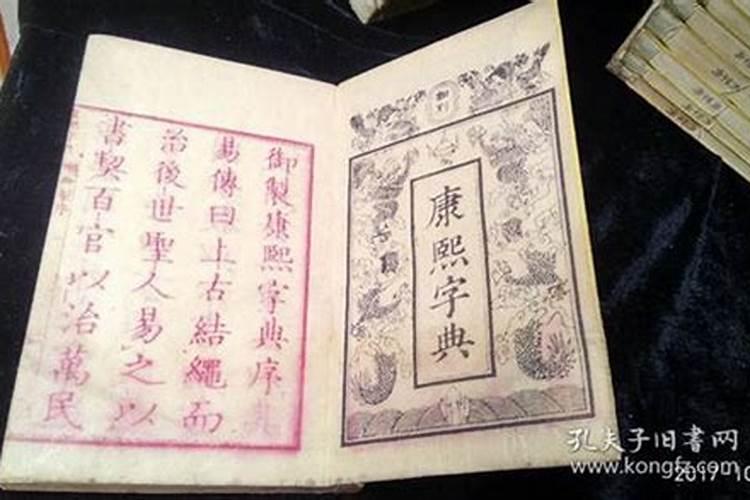 御製
康熙字典
御製康熙字典序
易傳曰上古結繩而
治後世聖人易之以
書契百官以治萬民
孔夫子旧书网
www.kongfz.com
2017 10